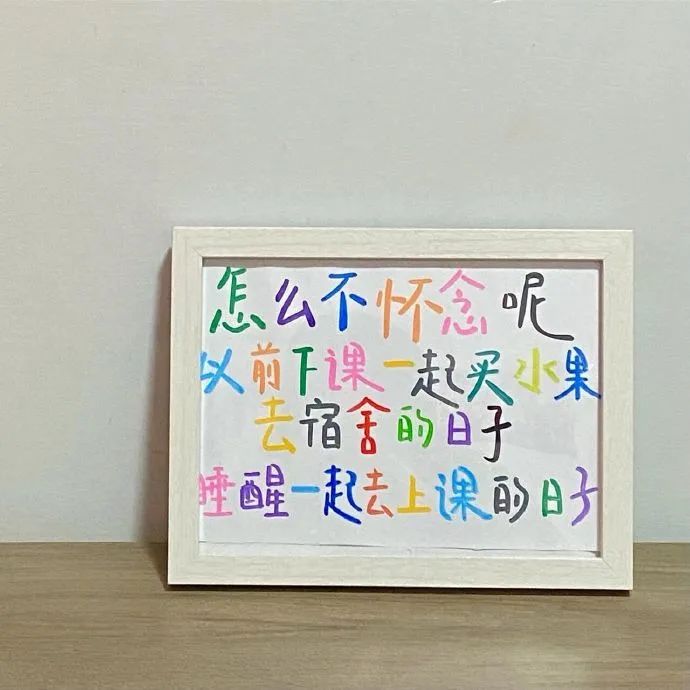 怎么不怀念呢
以前下课一起买水果
去宿舍的日子
睡醒一起去上课的日子